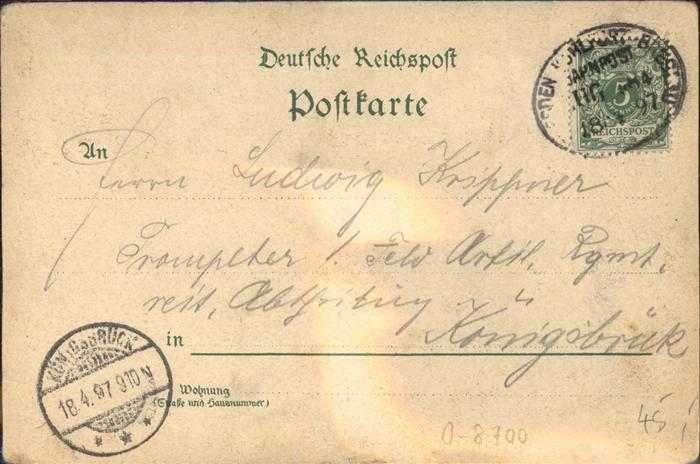 Deutsche Reichspost
Postkarte
BAHNPOST
18 4 97
5
REICHSPOST
An
Herrn Ludwig Krippner
Trompeter 1. Feld Artil. Rgmt.
reit. Abtheilung
in Königsbrück
Wohnung
(Straße und Hausnummer)
KÖNIGSBRÜCK
18.4.97 910N
* * *
45
0-8700